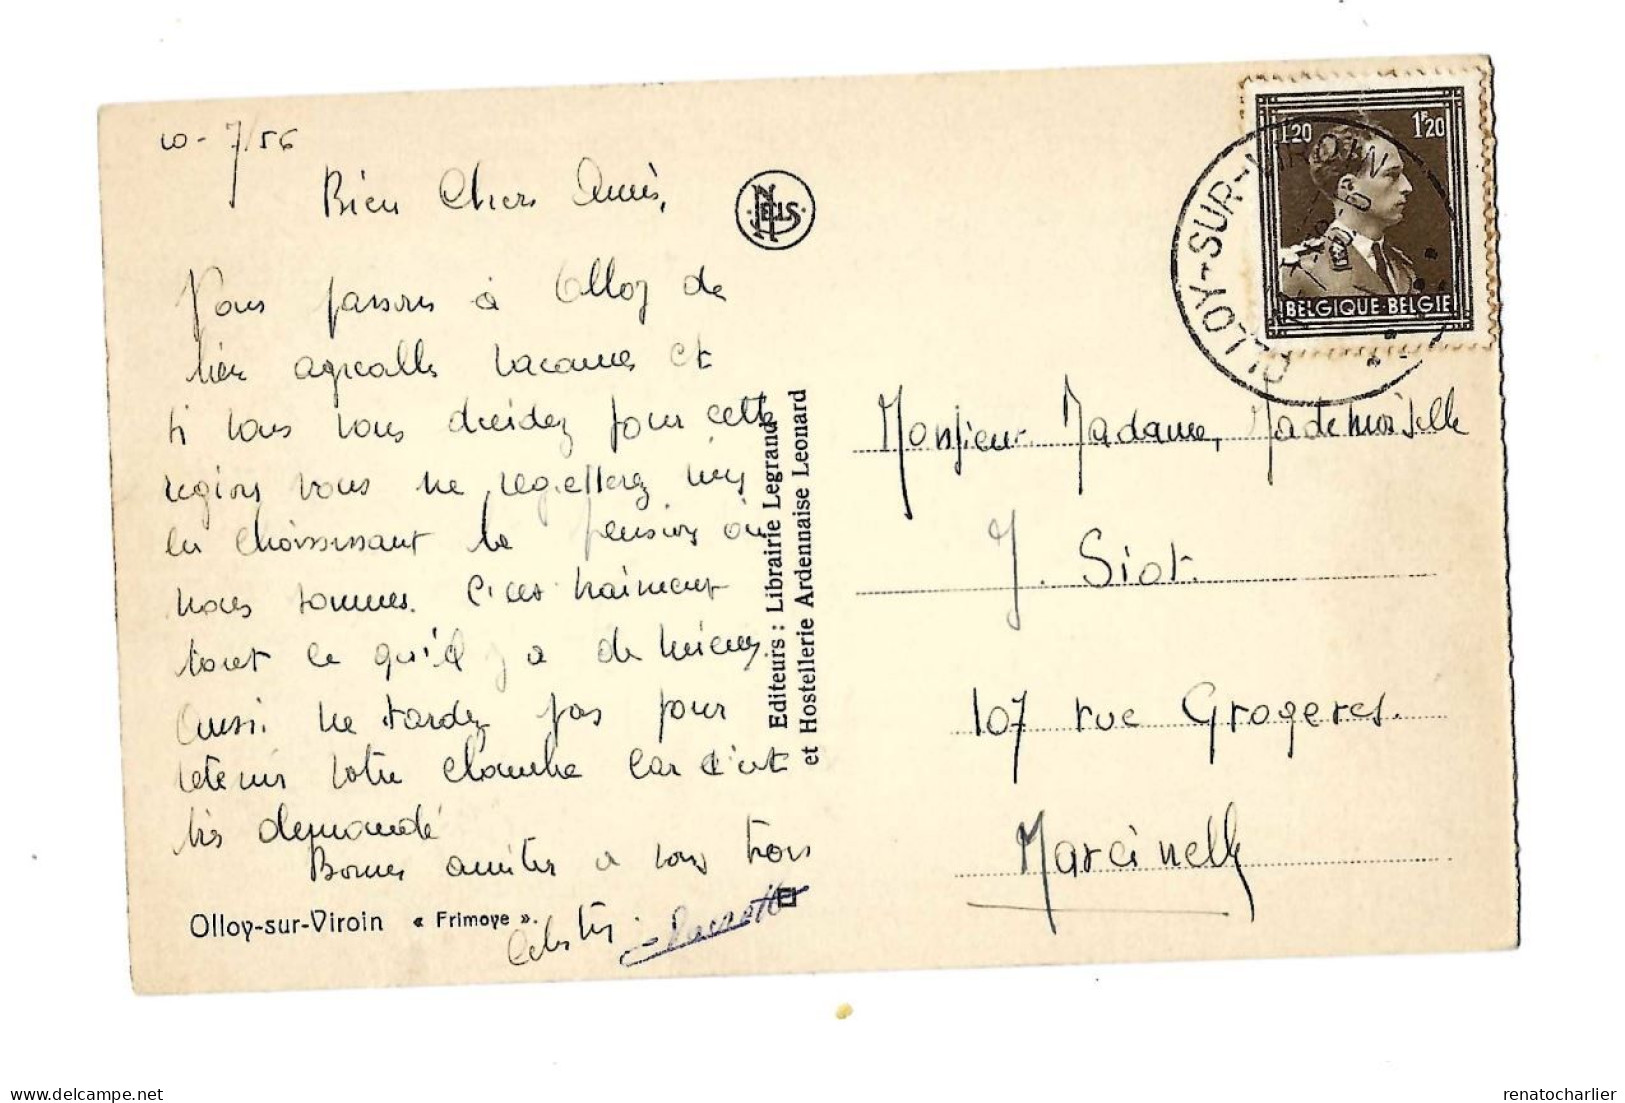 10-7/56
Bien Chers Amis,
Nous passons à Olloy de
bien agréables vacances et
si vous vous décidez pour cette
region vous ne regretterez rien
en choississant la pension où
nous sommes. C'est vraiment
tout ce qu'il y a de mieux.
Aussi ne tardez pas pour
retenir votre chambre car c'est
très demandé
Bonnes amitiés a vous trois
Olloy-sur-Viroin « Frimoye ».
NELS
Editeurs : Librairie Legrand
et Hostellerie Ardennaise Leonard
1F20 1F20
BELGIQUE-BELGIE
OLLOY-SUR-VIROIN
Monsieur Madame, Mademoiselle
J. Siot.
107 rue Grogeres.
Marcinelle
renatocharlier
delcampe.net